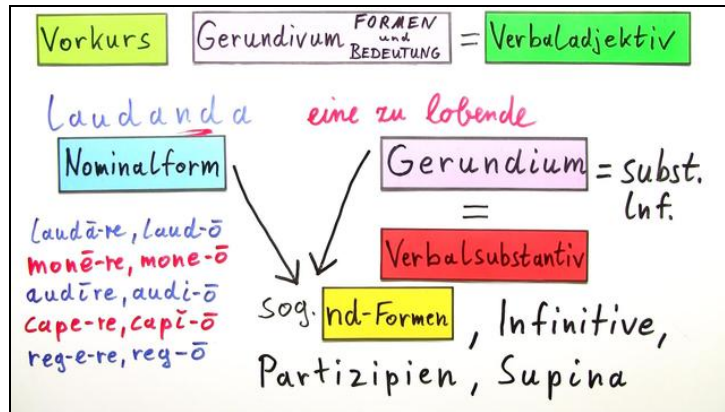 Vorkurs Gerundivum FORMEN und BEDEUTUNG = Verbaladjektiv
laudanda eine zu lobende
Nominalform Gerundium = subst. Inf.
=
laudā-re, laud-ō Verbalsubstantiv
monē-re, mone-ō
audīre, audi-ō
cape-re, capĭ-ō
reg-e-re, reg-ō
sog. nd-Formen, Infinitive,
Partizipien, Supina